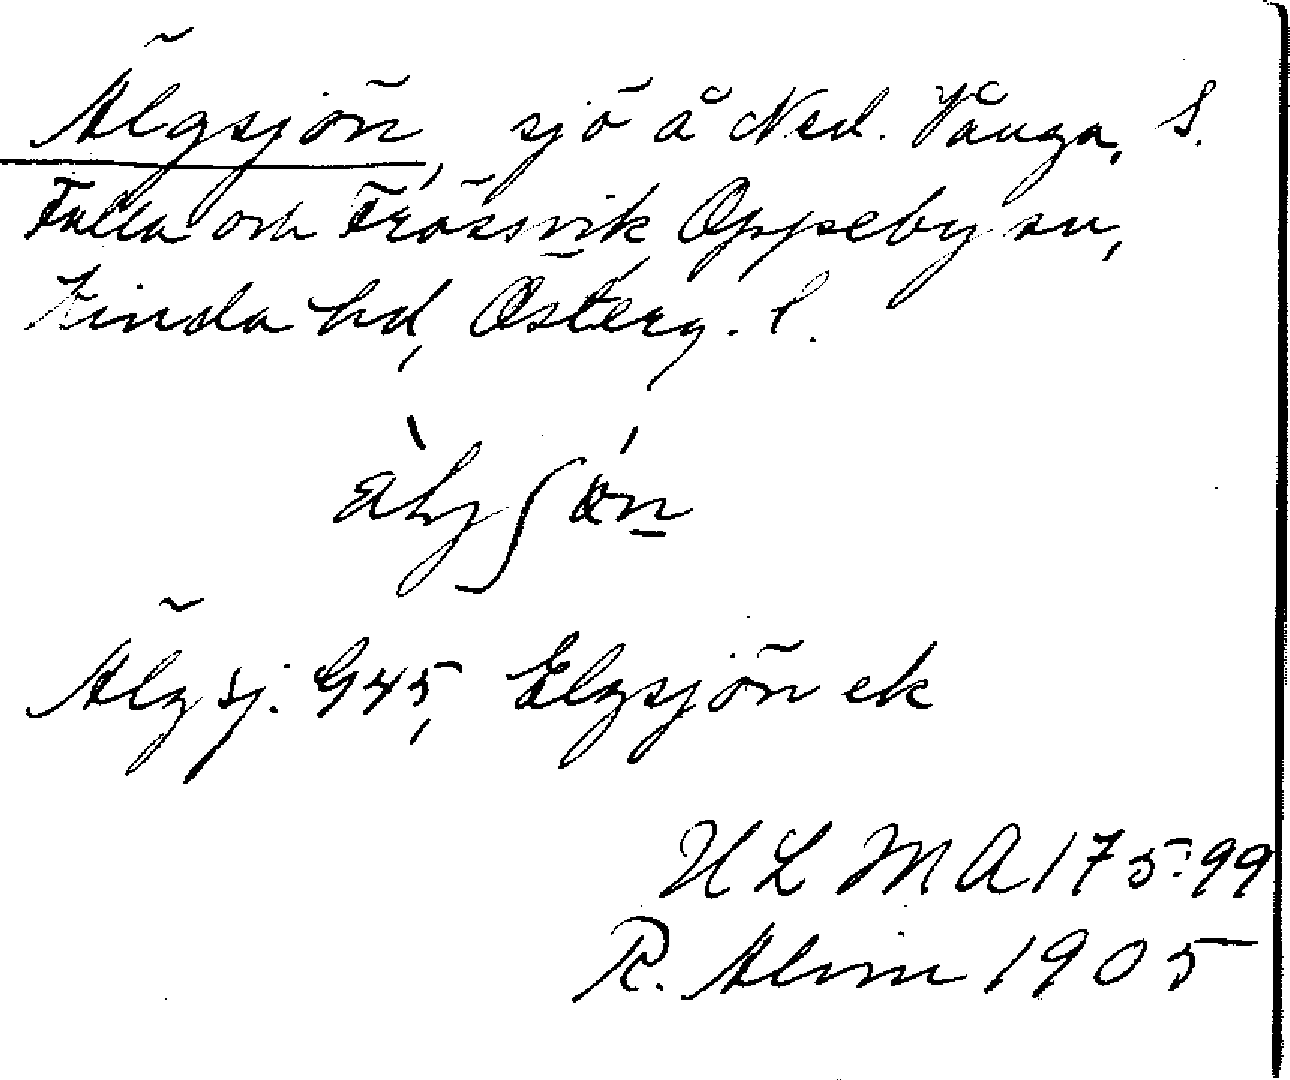 Älgsjön, sjö å Ned. Vånga, S.
Falla och Frössvik Oppeby sn,
Kinda hd, Österg. l.
Älgsj. G45, Elgsjön ek
ULMA 175:99
R. Alvin 1905